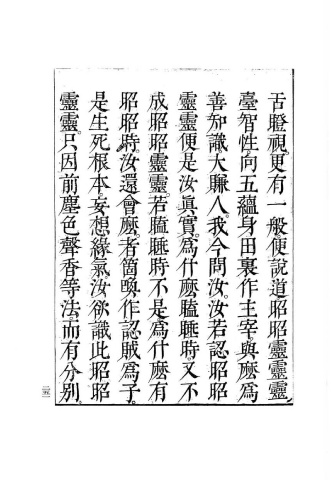 舌瞪視更有一般便說道昭昭靈靈靈
臺智性向五蘊身田裏作主宰與麽爲
善知識大賺人我今問汝汝若認昭昭
靈靈便是汝眞實爲什麽瞌睡時又不
成昭昭靈靈若瞌睡時不是爲什麽有
昭昭時汝還會麽者箇喚作認賊爲子
是生死根本妄想緣氣汝欲識此昭昭
靈靈只因前塵色聲香等法而有分別